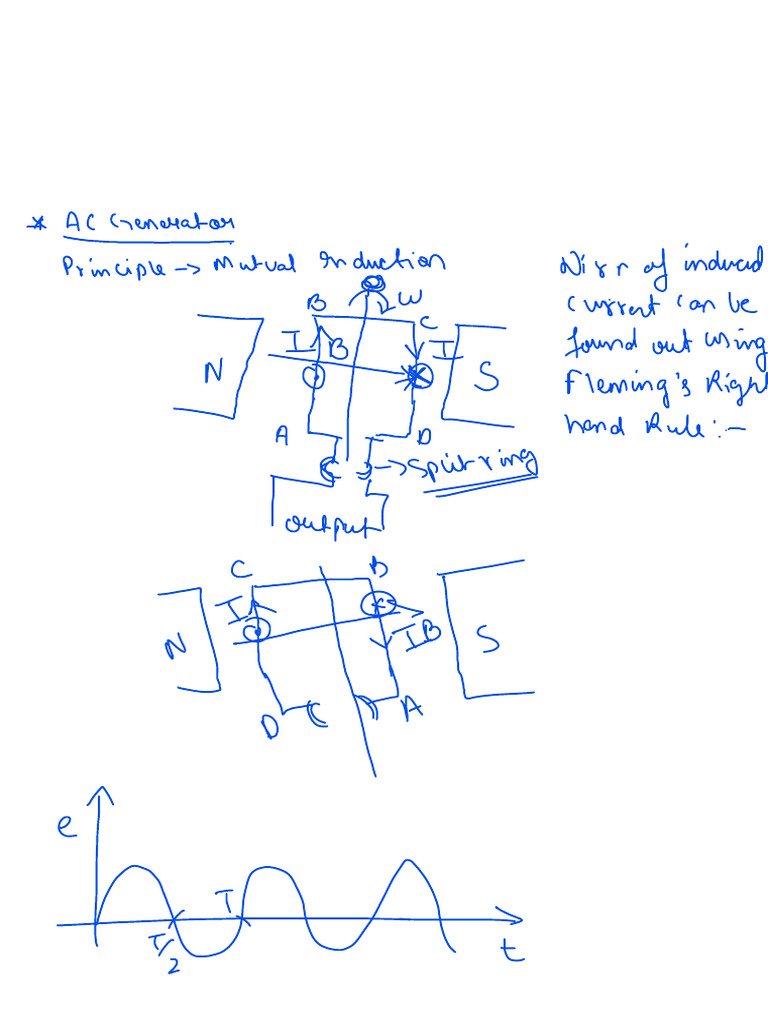 * AC Generator
Principle → Mutual Induction
Dirn of induced
current can be
found out using
Fleming's Right
hand Rule:-
B
ω
C
I
B
I
N
S
A
D
→ split ring
output
C
B
I
I
B
N
S
D
A
e
T
T/2
t